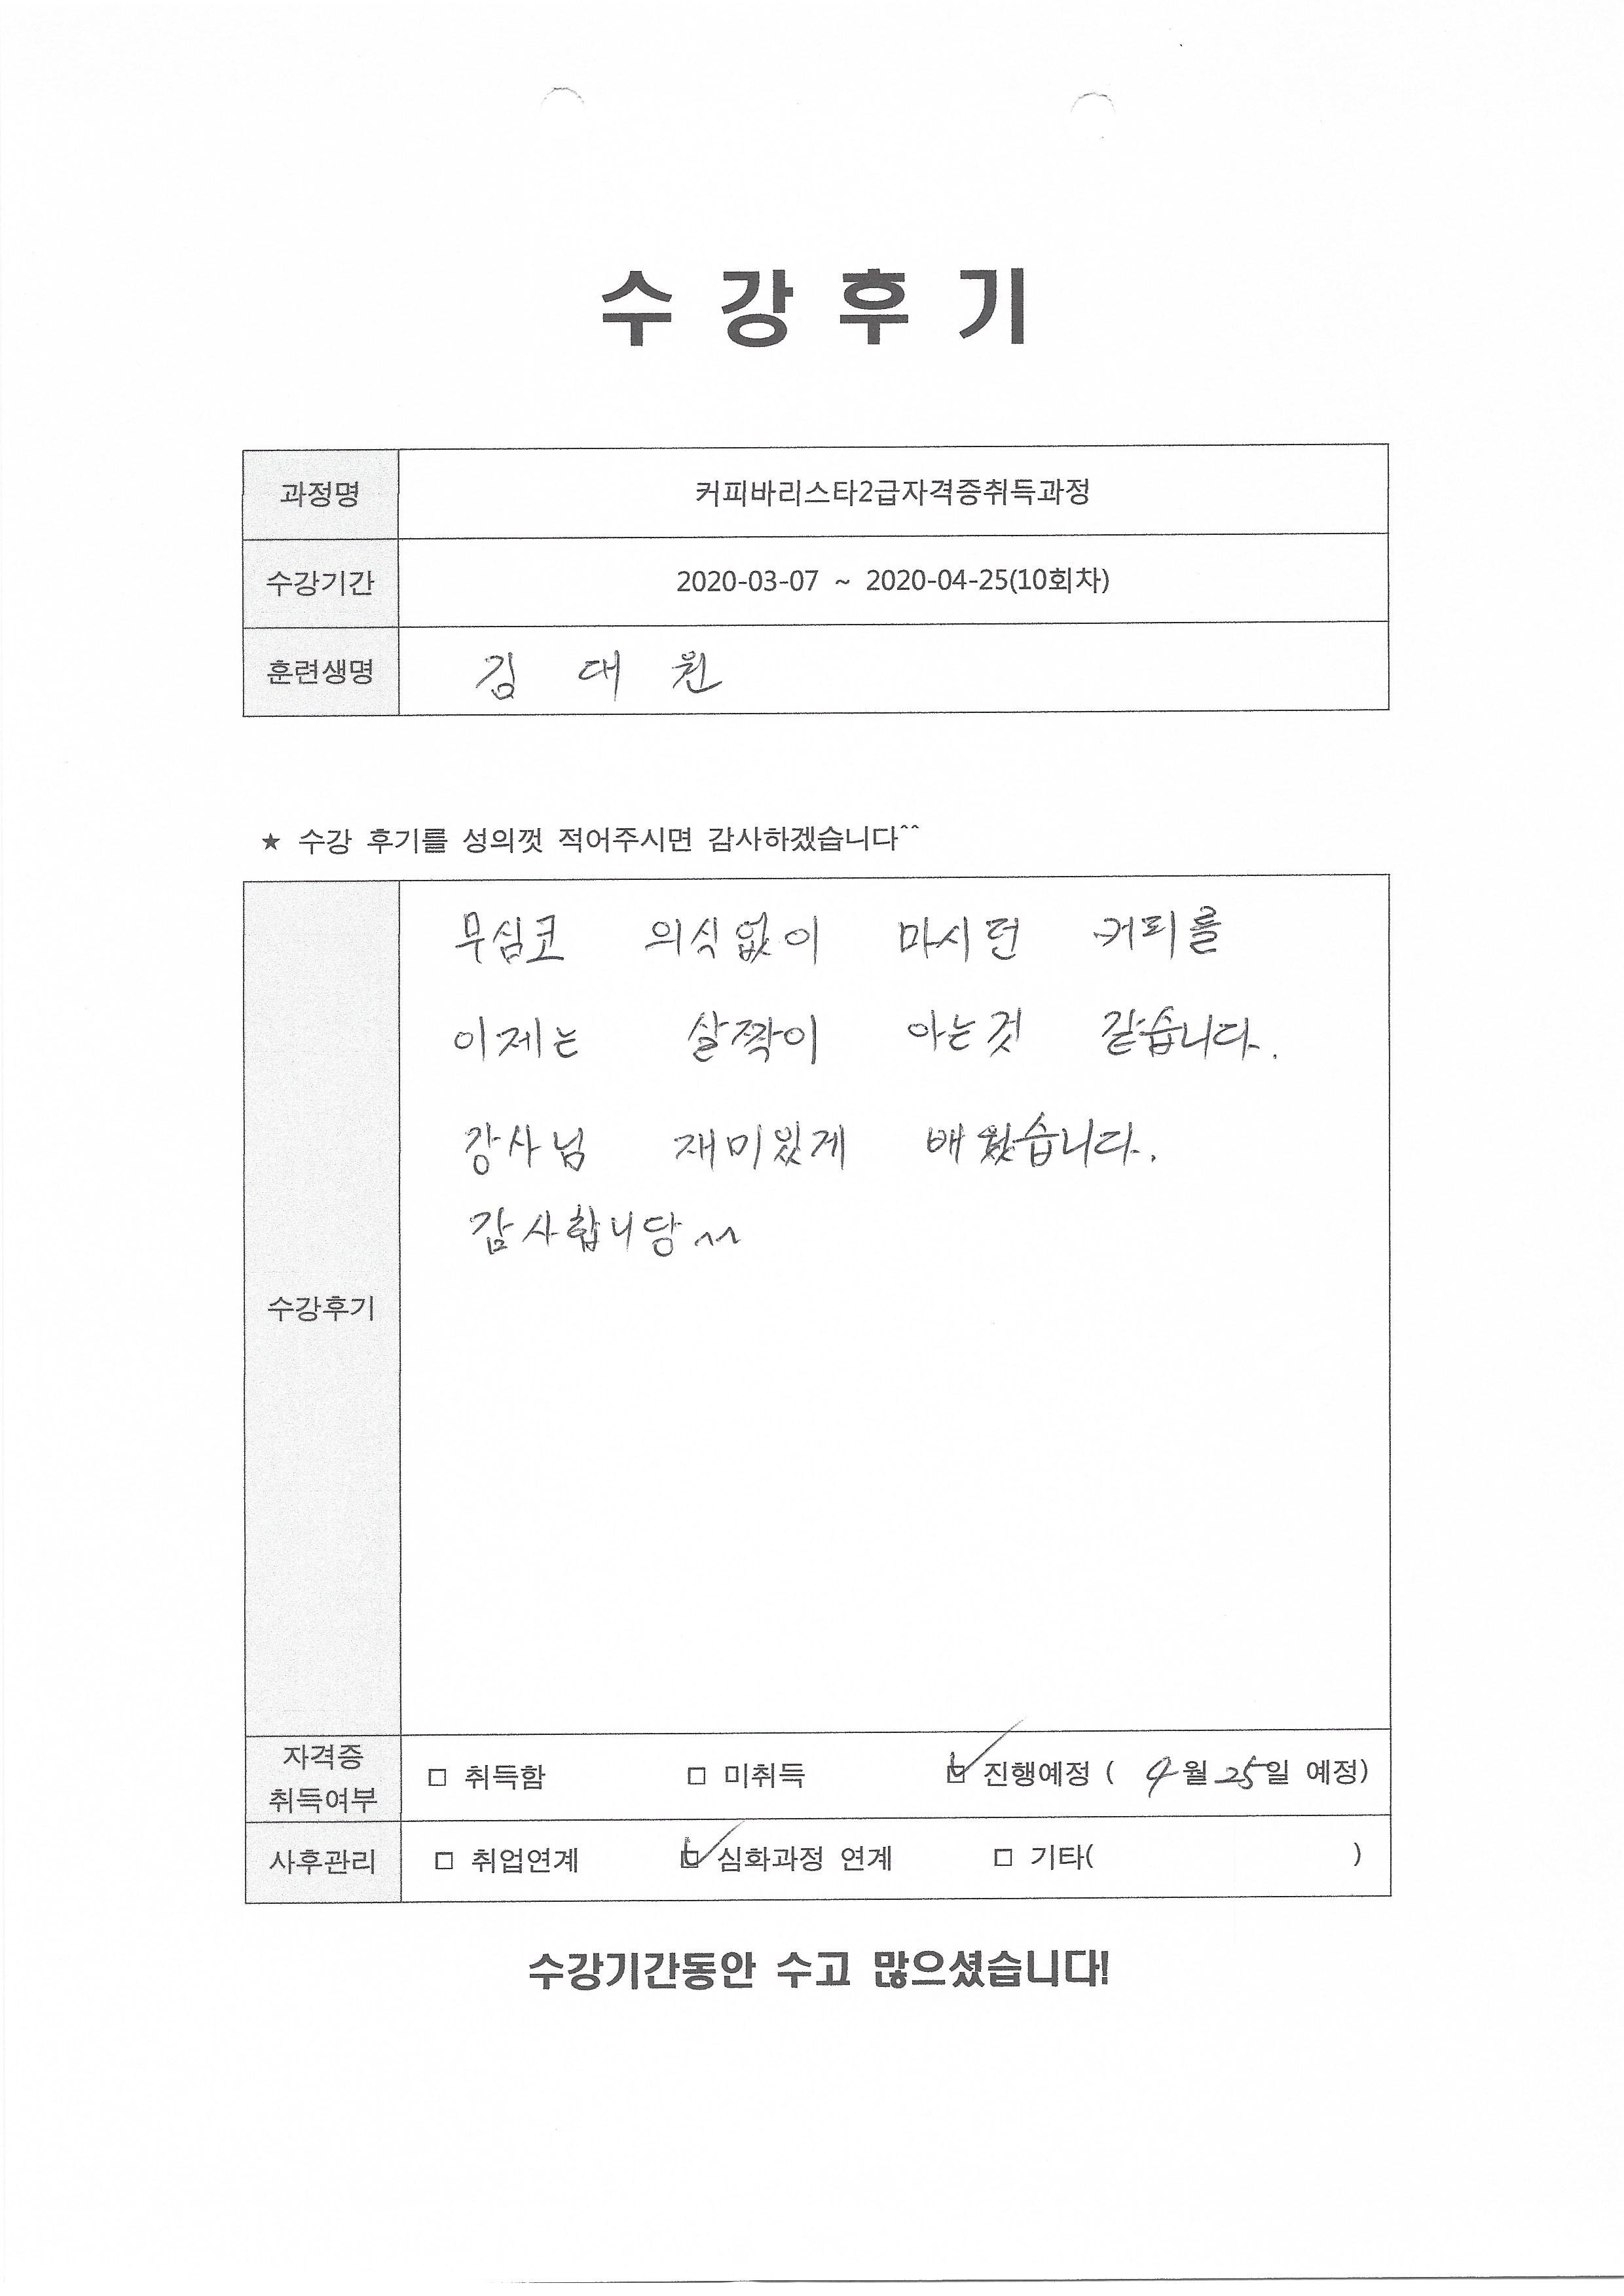 수강후기
과정명 커피바리스타2급자격증취득과정
수강기간 2020-03-07 ~ 2020-04-25(10회차)
훈련생명 김 대 원
★ 수강 후기를 성의껏 적어주시면 감사하겠습니다^^
무심코 의식없이 마시던 커피를
이제는 살짝이 아는것 같습니다.
강사님 재미있게 배웠습니다.
감사합니당^^
수강후기
자격증
취득여부
□ 취득함 □ 미취득 ☑ 진행예정 ( 4월 25일 예정)
사후관리 □ 취업연계 ☑ 심화과정 연계 □ 기타( )
수강기간동안 수고 많으셨습니다!